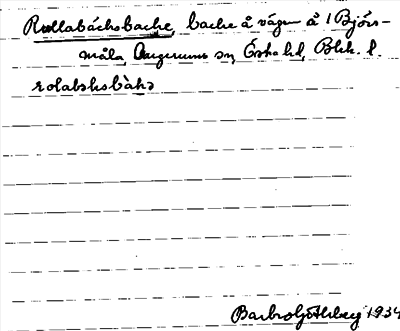 Rullabäcksbacke, backe å vägen å 1 Björs-
måla, Augerums sn, Östra hd, Blek. l.
rolabaksbaka
1934